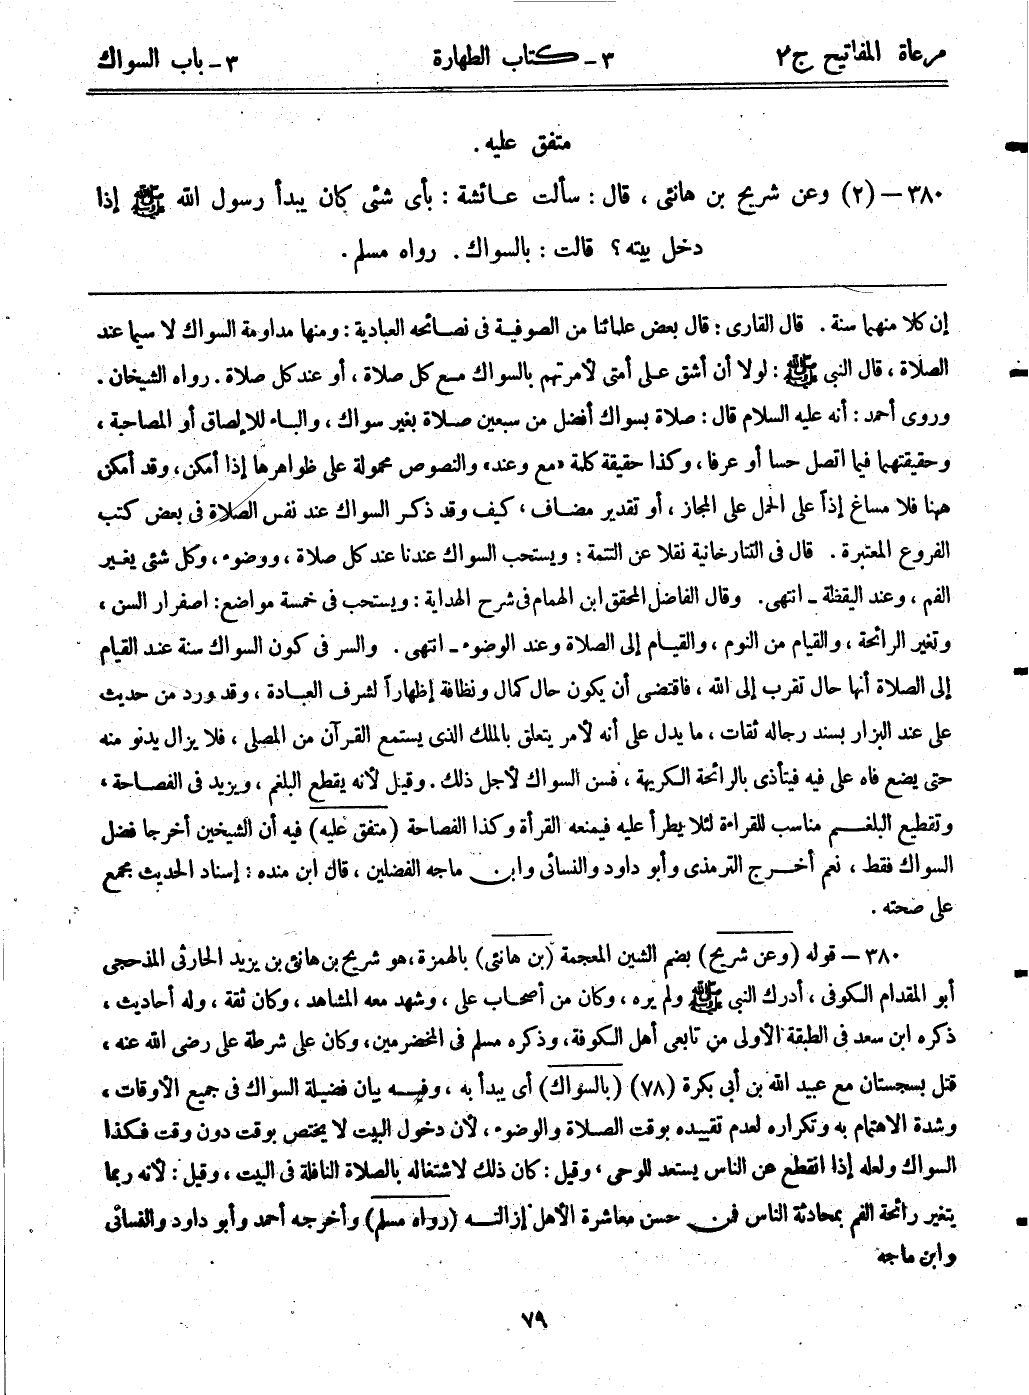 مرعاة المفاتيح ج ٢ ٣ - كتاب الطهارة ٣ - باب السواك
متفق عليه .
٣٨٠ - (٢) وعن شريح بن هانئى ، قال : سألت عائشة : بأى شئى كان يبدأ رسول الله ﷺ إذا
دخل بيته ؟ قالت : بالسواك . رواه مسلم .
إن كلا منهما سنة . قال القارى : قال بعض علمائنا من الصوفية فى نصائحه العبادية : ومنها مداومة السواك لا سيما عند
الصلاة ، قال النبى ﷺ : لولا أن أشق على أمتى لأمرتهم بالسواك مع كل صلاة ، أو عند كل صلاة . رواه الشيخان .
وروى أحمد : أنه عليه السلام قال : صلاة بسواك أفضل من سبعين صلاة بغير سواك ، والباء للالصاق أو المصاحبة ،
وحقيقتهما فيما اتصل حسا أو عرفا ، وكذا حقيقة كلمة «مع وعند» والنصوص محمولة على ظواهرها إذا أمكن ، وقد أمكن
ههنا فلا مساغ إذاً على الحمل على المجاز ، أو تقدير مضاف ، كيف وقد ذكر السواك عند نفس الصلاة فى بعض كتب
الفروع المعتبرة . قال فى التتارخانية نقلا عن التتمة : ويستحب السواك عندنا عند كل صلاة ، ووضوء ، وكل شئى يغير
الفم ، وعند اليقظة - انتهى . وقال الفاضل المحقق ابن الهمام فى شرح الهداية : ويستحب فى خمسة مواضع : اصفرار السن ،
وتغير الرائحة ، والقيام من النوم ، والقيام إلى الصلاة وعند الوضوء - انتهى . والسر فى كون السواك سنة عند القيام
إلى الصلاة أنها حال تقرب إلى الله ، فاقتضى أن يكون حال كمال ونظافة إظهاراً لشرف العبادة ، وقد ورد من حديث
على عند البزار بسند رجاله ثقات ، ما يدل على أنه لأمر يتعلق بالملك الذى يستمع القرآن من المصلى ، فلا يزال يدنو منه
حتى يضع فاه على فيه فيتأذى بالرائحة الكريهة ، فسن السواك لأجل ذلك . وقيل لأنه يقطع البلغم ، ويزيد فى الفصاحة ،
وتقطيع البلغم مناسب للقراءة لئلا يطرأ عليه فيمنعه القرأة وكذا الفصاحة (متفق عليه) فيه أن الشيخين أخرجا فضل
السواك فقط ، نعم أخرج الترمذى وأبو داود والنسائى وابن ماجه الفضلين ، قال ابن منده : إسناد الحديث مجمع
على صحته .
٣٨٠ - قوله (وعن شريح) بضم الشين المعجمة (بن هانئى) بالهمزة ، هو شريح بن هانئى بن يزيد الحارثى المذحجى
أبو المقدام الكوفى ، أدرك النبى ﷺ ولم يره ، وكان من أصحاب على ، وشهد معه المشاهد ، وكان ثقة ، وله أحاديث ،
ذكره ابن سعد فى الطبقة الأولى من تابعى أهل الكوفة ، وذكره مسلم فى المخضرمين ، وكان على شرطة على رضى الله عنه ،
قتل بسجستان مع عبيد الله بن أبي بكرة (٧٨) (بالسواك) أى يبدأ به ، وفيه بيان فضيلة السواك فى جميع الأوقات ،
وشدة الاهتمام به وتكراره لعدم تقييده بوقت الصلاة والوضوء ، لأن دخول البيت لا يختص بوقت دون وقت فكذا
السواك ولعله إذا انقطع عن الناس يستعد للوحى ، وقيل : كان ذلك لاشتغاله بالصلاة النافلة فى البيت ، وقيل : لأنه ربما
يتغير رائحة الفم بمحادثة الناس فمن حسن معاشرة الأهل إزالته (رواه مسلم) وأخرجه أحمد وأبو داود والنسائى
وابن ماجه
٧٩